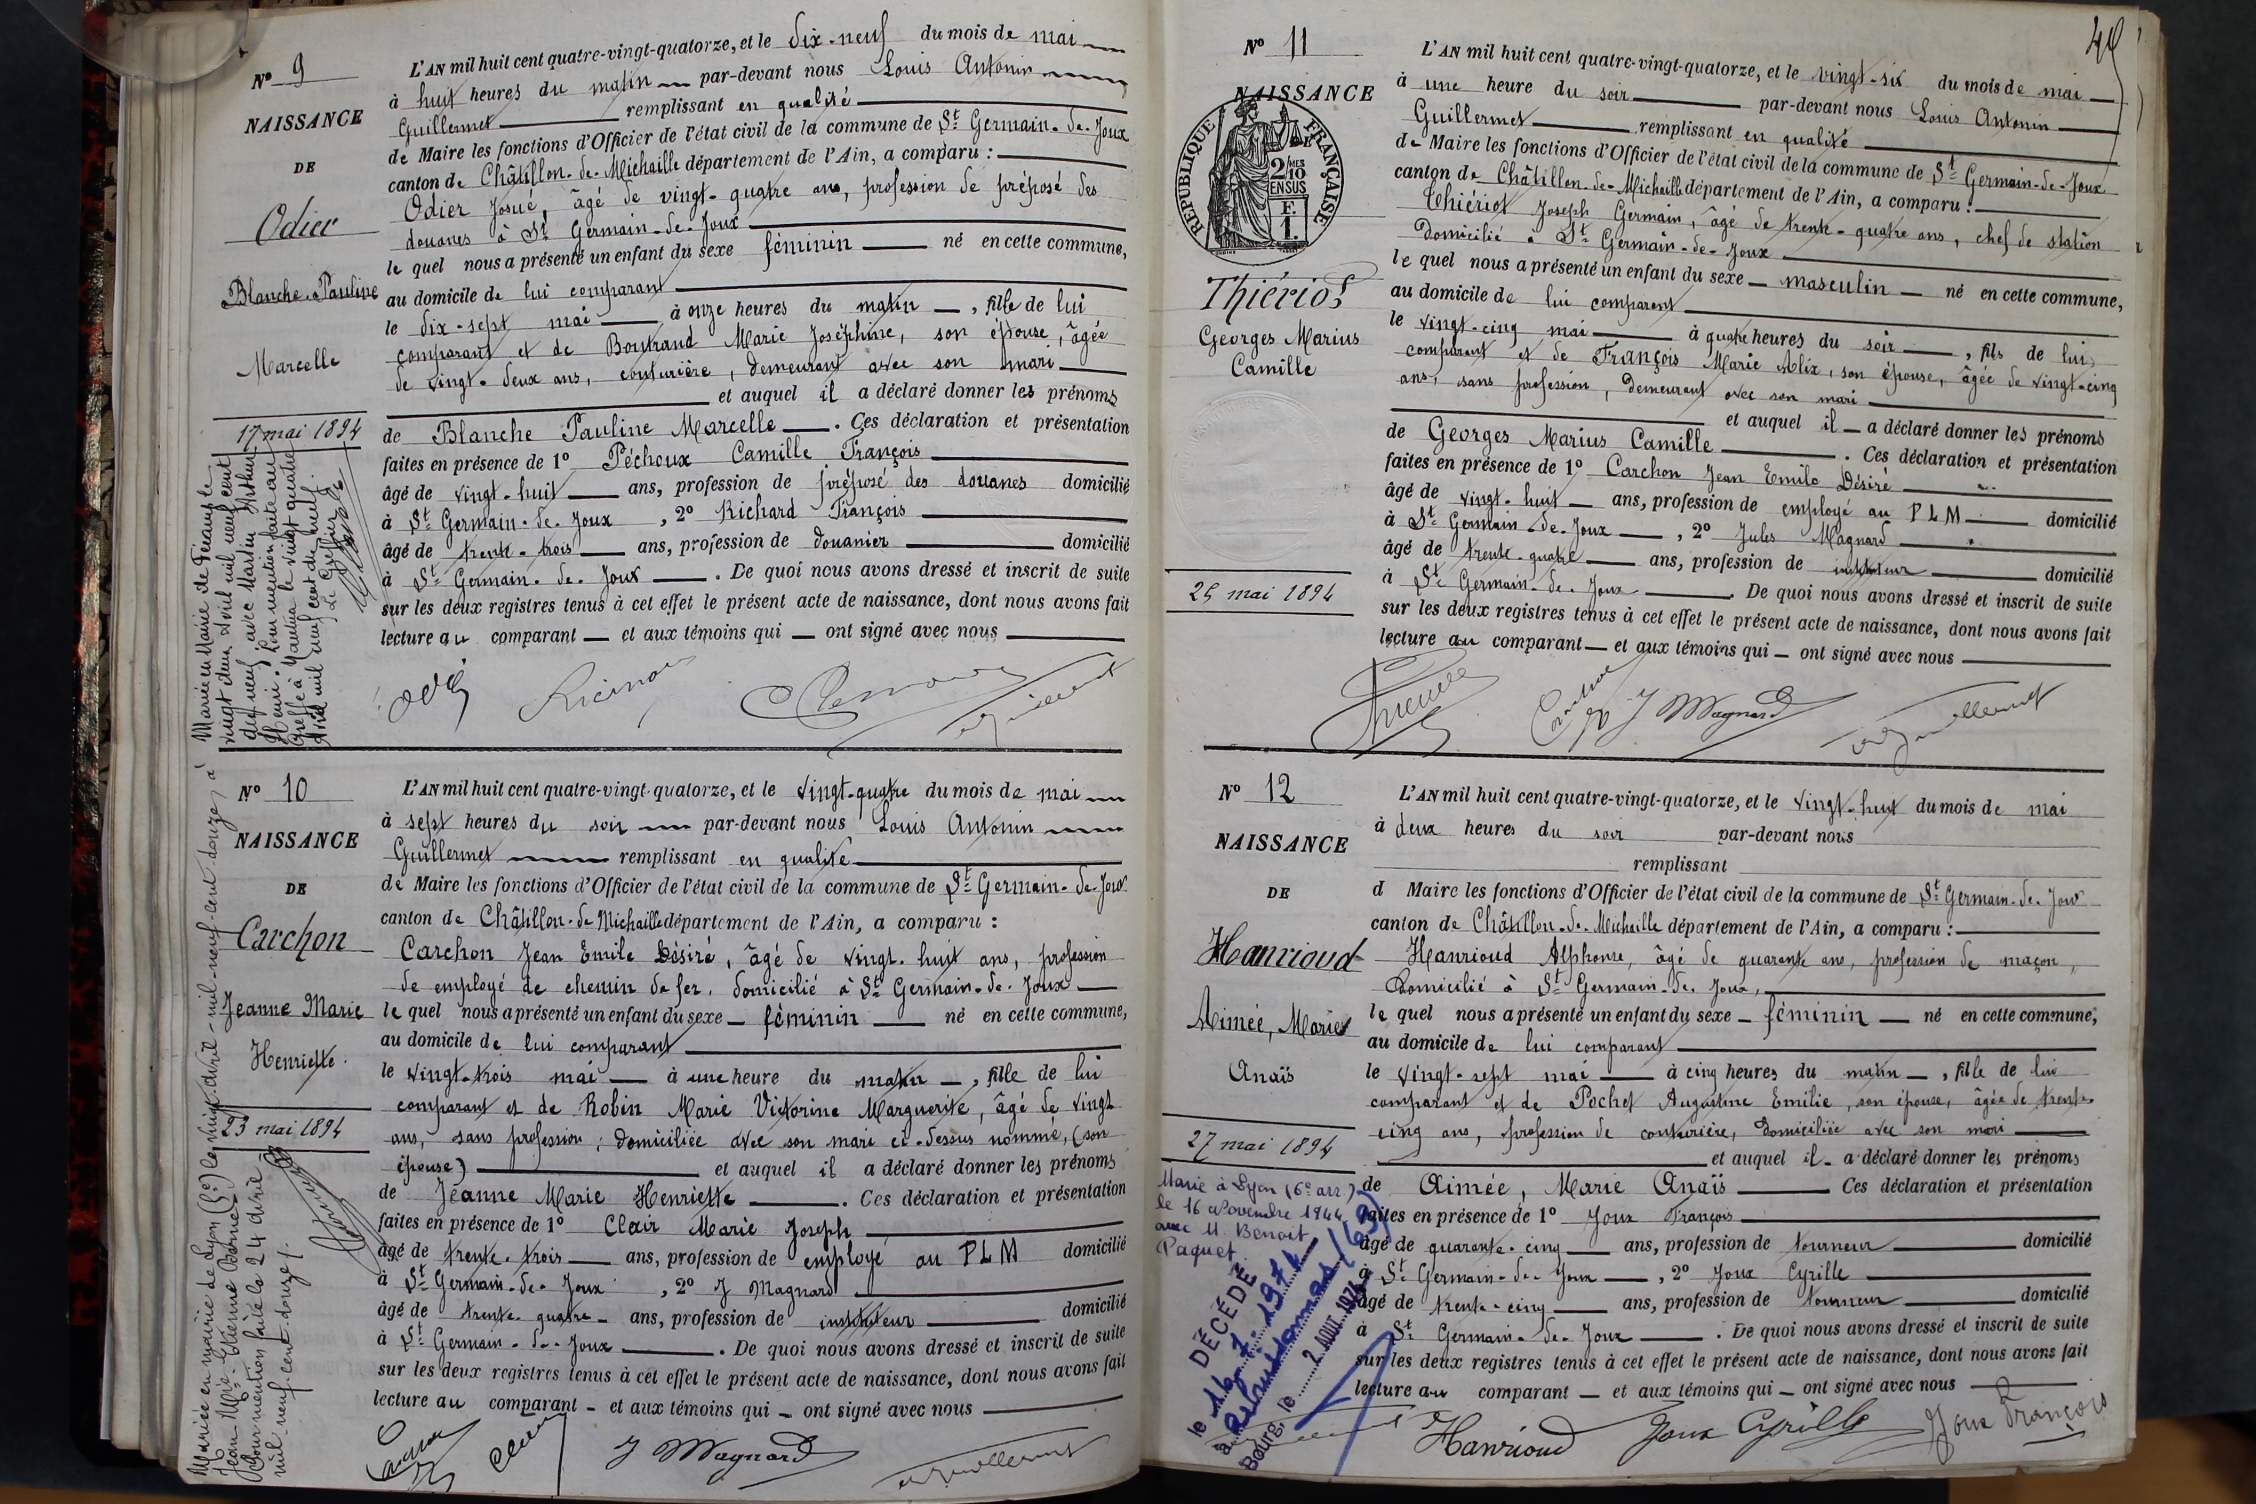 N° 9
NAISSANCE
DE
Odier
Blanche Pauline
Marcelle
17 mai 1894
Mariée en Mairie de Fécamp le
vingt deux Avril mil neuf cent
dix neuf avec Martin Arthur
Henri. Pour mention faite au
Greffe à Nantua le vingt quatre
Avril mil neuf cent dix neuf.
Le Greffier
L'AN mil huit cent quatre-vingt-quatorze, et le dix-neuf du mois de mai
à huit heures du matin par-devant nous Louis Antonin
Guillermet remplissant en qualité
de Maire les fonctions d'Officier de l'état civil de la commune de St Germain-de-Joux
canton de Châtillon-de-Michaille département de l'Ain, a comparu :
Odier Josué, âgé de vingt-quatre ans, profession de préposé des
douanes à St Germain-de-Joux
le quel nous a présenté un enfant du sexe féminin né en cette commune,
au domicile de lui comparant
le dix-sept mai à onze heures du matin, fille de lui
comparant et de Boutrand Marie Joséphine, son épouse, âgée
de vingt-deux ans, couturière, demeurant avec son mari
et auquel il a déclaré donner les prénoms
de Blanche Pauline Marcelle. Ces déclaration et présentation
faites en présence de 1° Péchoux Camille François
âgé de vingt-huit ans, profession de préposé des douanes domicilié
à St Germain-de-Joux, 2° Richard François
âgé de trente-trois ans, profession de douanier domicilié
à St Germain-de-Joux. De quoi nous avons dressé et inscrit de suite
sur les deux registres tenus à cet effet le présent acte de naissance, dont nous avons fait
lecture au comparant et aux témoins qui ont signé avec nous
N° 10
NAISSANCE
DE
Carchon
Jeanne Marie
Henriette
23 mai 1894
Mariée en mairie de Lyon (5e) le vingt avril mil-neuf-cent-douze, à
Jean Marie Etienne
Pour mention faite le 24 avril
mil-neuf-cent-douze
L'AN mil huit cent quatre-vingt-quatorze, et le vingt-quatre du mois de mai
à sept heures du soir par-devant nous Louis Antonin
Guillermet remplissant en qualité
de Maire les fonctions d'Officier de l'état civil de la commune de St Germain-de-Joux
canton de Châtillon-de-Michaille département de l'Ain, a comparu :
Carchon Jean Emile Désiré, âgé de vingt-huit ans, profession
de employé de chemin de fer, domicilié à St Germain-de-Joux
le quel nous a présenté un enfant du sexe féminin né en cette commune,
au domicile de lui comparant
le vingt-trois mai à une heure du matin, fille de lui
comparant et de Robin Marie Victorine Marguerite, âgé de vingt
ans, sans profession, domiciliée avec son mari ci-dessus nommé, (son
épouse) et auquel il a déclaré donner les prénoms
de Jeanne Marie Henriette. Ces déclaration et présentation
faites en présence de 1° Clair Marie Joseph
âgé de trente-trois ans, profession de employé au PLM domicilié
à St Germain-de-Joux, 2° J Magnard
âgé de trente-quatre ans, profession de instituteur domicilié
à St Germain-de-Joux. De quoi nous avons dressé et inscrit de suite
sur les deux registres tenus à cet effet le présent acte de naissance, dont nous avons fait
lecture au comparant et aux témoins qui ont signé avec nous
J Magnard
49
N° 11
NAISSANCE
DE
RÉPUBLIQUE FRANÇAISE
2/10 MES
EN SUS
F.
1.
Thiériot
Georges Marius
Camille
25 mai 1894
L'AN mil huit cent quatre-vingt-quatorze, et le vingt-six du mois de mai
à une heure du soir par-devant nous Louis Antonin
Guillermet remplissant en qualité
de Maire les fonctions d'Officier de l'état civil de la commune de St Germain-de-Joux
canton de Châtillon-de-Michaille département de l'Ain, a comparu :
Thiériot Joseph Germain, âgé de trente-quatre ans, chef de station
Domicilié à St Germain-de-Joux
le quel nous a présenté un enfant du sexe masculin né en cette commune,
au domicile de lui comparant
le vingt-cinq mai à quatre heures du soir, fils de lui
comparant et de François Marie Alix, son épouse, âgée de vingt-cinq
ans, sans profession, demeurant avec son mari
et auquel il a déclaré donner les prénoms
de Georges Marius Camille. Ces déclaration et présentation
faites en présence de 1° Carchon Jean Emile Désiré
âgé de vingt-huit ans, profession de employé au PLM domicilié
à St Germain-de-Joux, 2° Jules Magnard
âgé de trente-quatre ans, profession de instituteur domicilié
à St Germain-de-Joux. De quoi nous avons dressé et inscrit de suite
sur les deux registres tenus à cet effet le présent acte de naissance, dont nous avons fait
lecture au comparant et aux témoins qui ont signé avec nous
J Magnard
N° 12
NAISSANCE
DE
Hanrioud
Aimée, Marie
Anaïs
27 mai 1894
Marié à Lyon (6e arr)
le 16 Novembre 1944
avec M. Benoit
Paquet
DÉCÉDÉ
Bourg, le 2 AOUT 1974
L'AN mil huit cent quatre-vingt-quatorze, et le vingt-huit du mois de mai
à deux heures du soir par-devant nous
remplissant
d Maire les fonctions d'Officier de l'état civil de la commune de St Germain-de-Joux
canton de Châtillon-de-Michaille département de l'Ain, a comparu :
Hanrioud Alphonse, âgé de quarante ans, profession de maçon,
Domicilié à St Germain-de-Joux,
le quel nous a présenté un enfant du sexe féminin né en cette commune,
au domicile de lui comparant
le vingt-sept mai à cinq heures du matin, fille de lui
comparant et de Pochet Augustine Emilie, son épouse, âgée de trente-
cinq ans, profession de couturière, domiciliée avec son mari
et auquel il a déclaré donner les prénoms
de Aimée, Marie Anaïs Ces déclaration et présentation
faites en présence de 1° Joux François
âgé de quarante-cinq ans, profession de tourneur domicilié
à St Germain-de-Joux, 2° Joux Cyrille
âgé de trente-cinq ans, profession de tourneur domicilié
à St Germain-de-Joux. De quoi nous avons dressé et inscrit de suite
sur les deux registres tenus à cet effet le présent acte de naissance, dont nous avons fait
lecture au comparant et aux témoins qui ont signé avec nous
Hanrioud Joux Cyrille Joux François